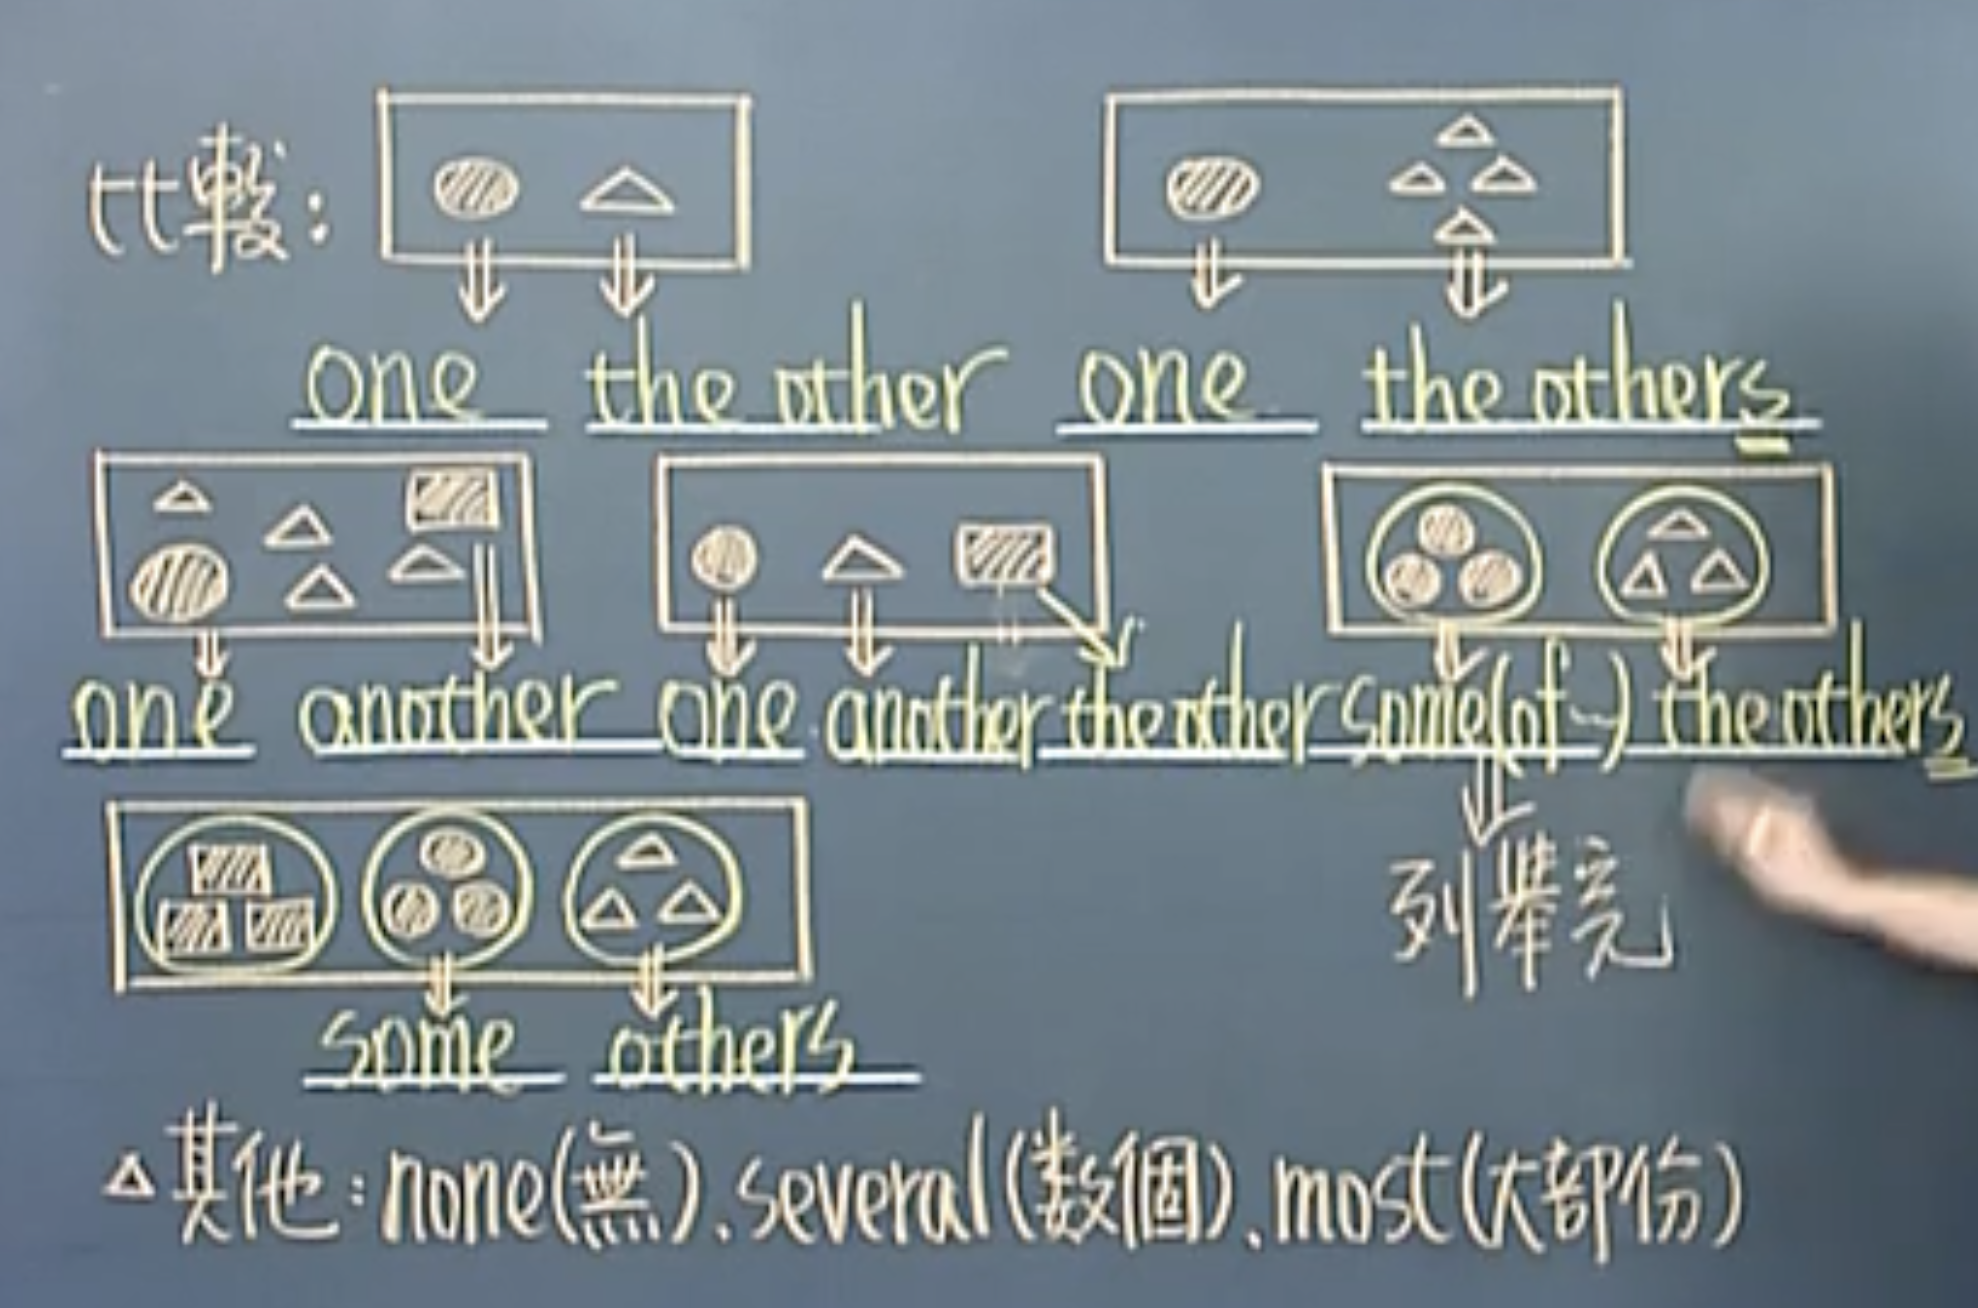 比較:
one the other one the others
one another one another the other some(of~) the others
列舉完
some others
△其他:none(無)、several(数個)、most(大部份)